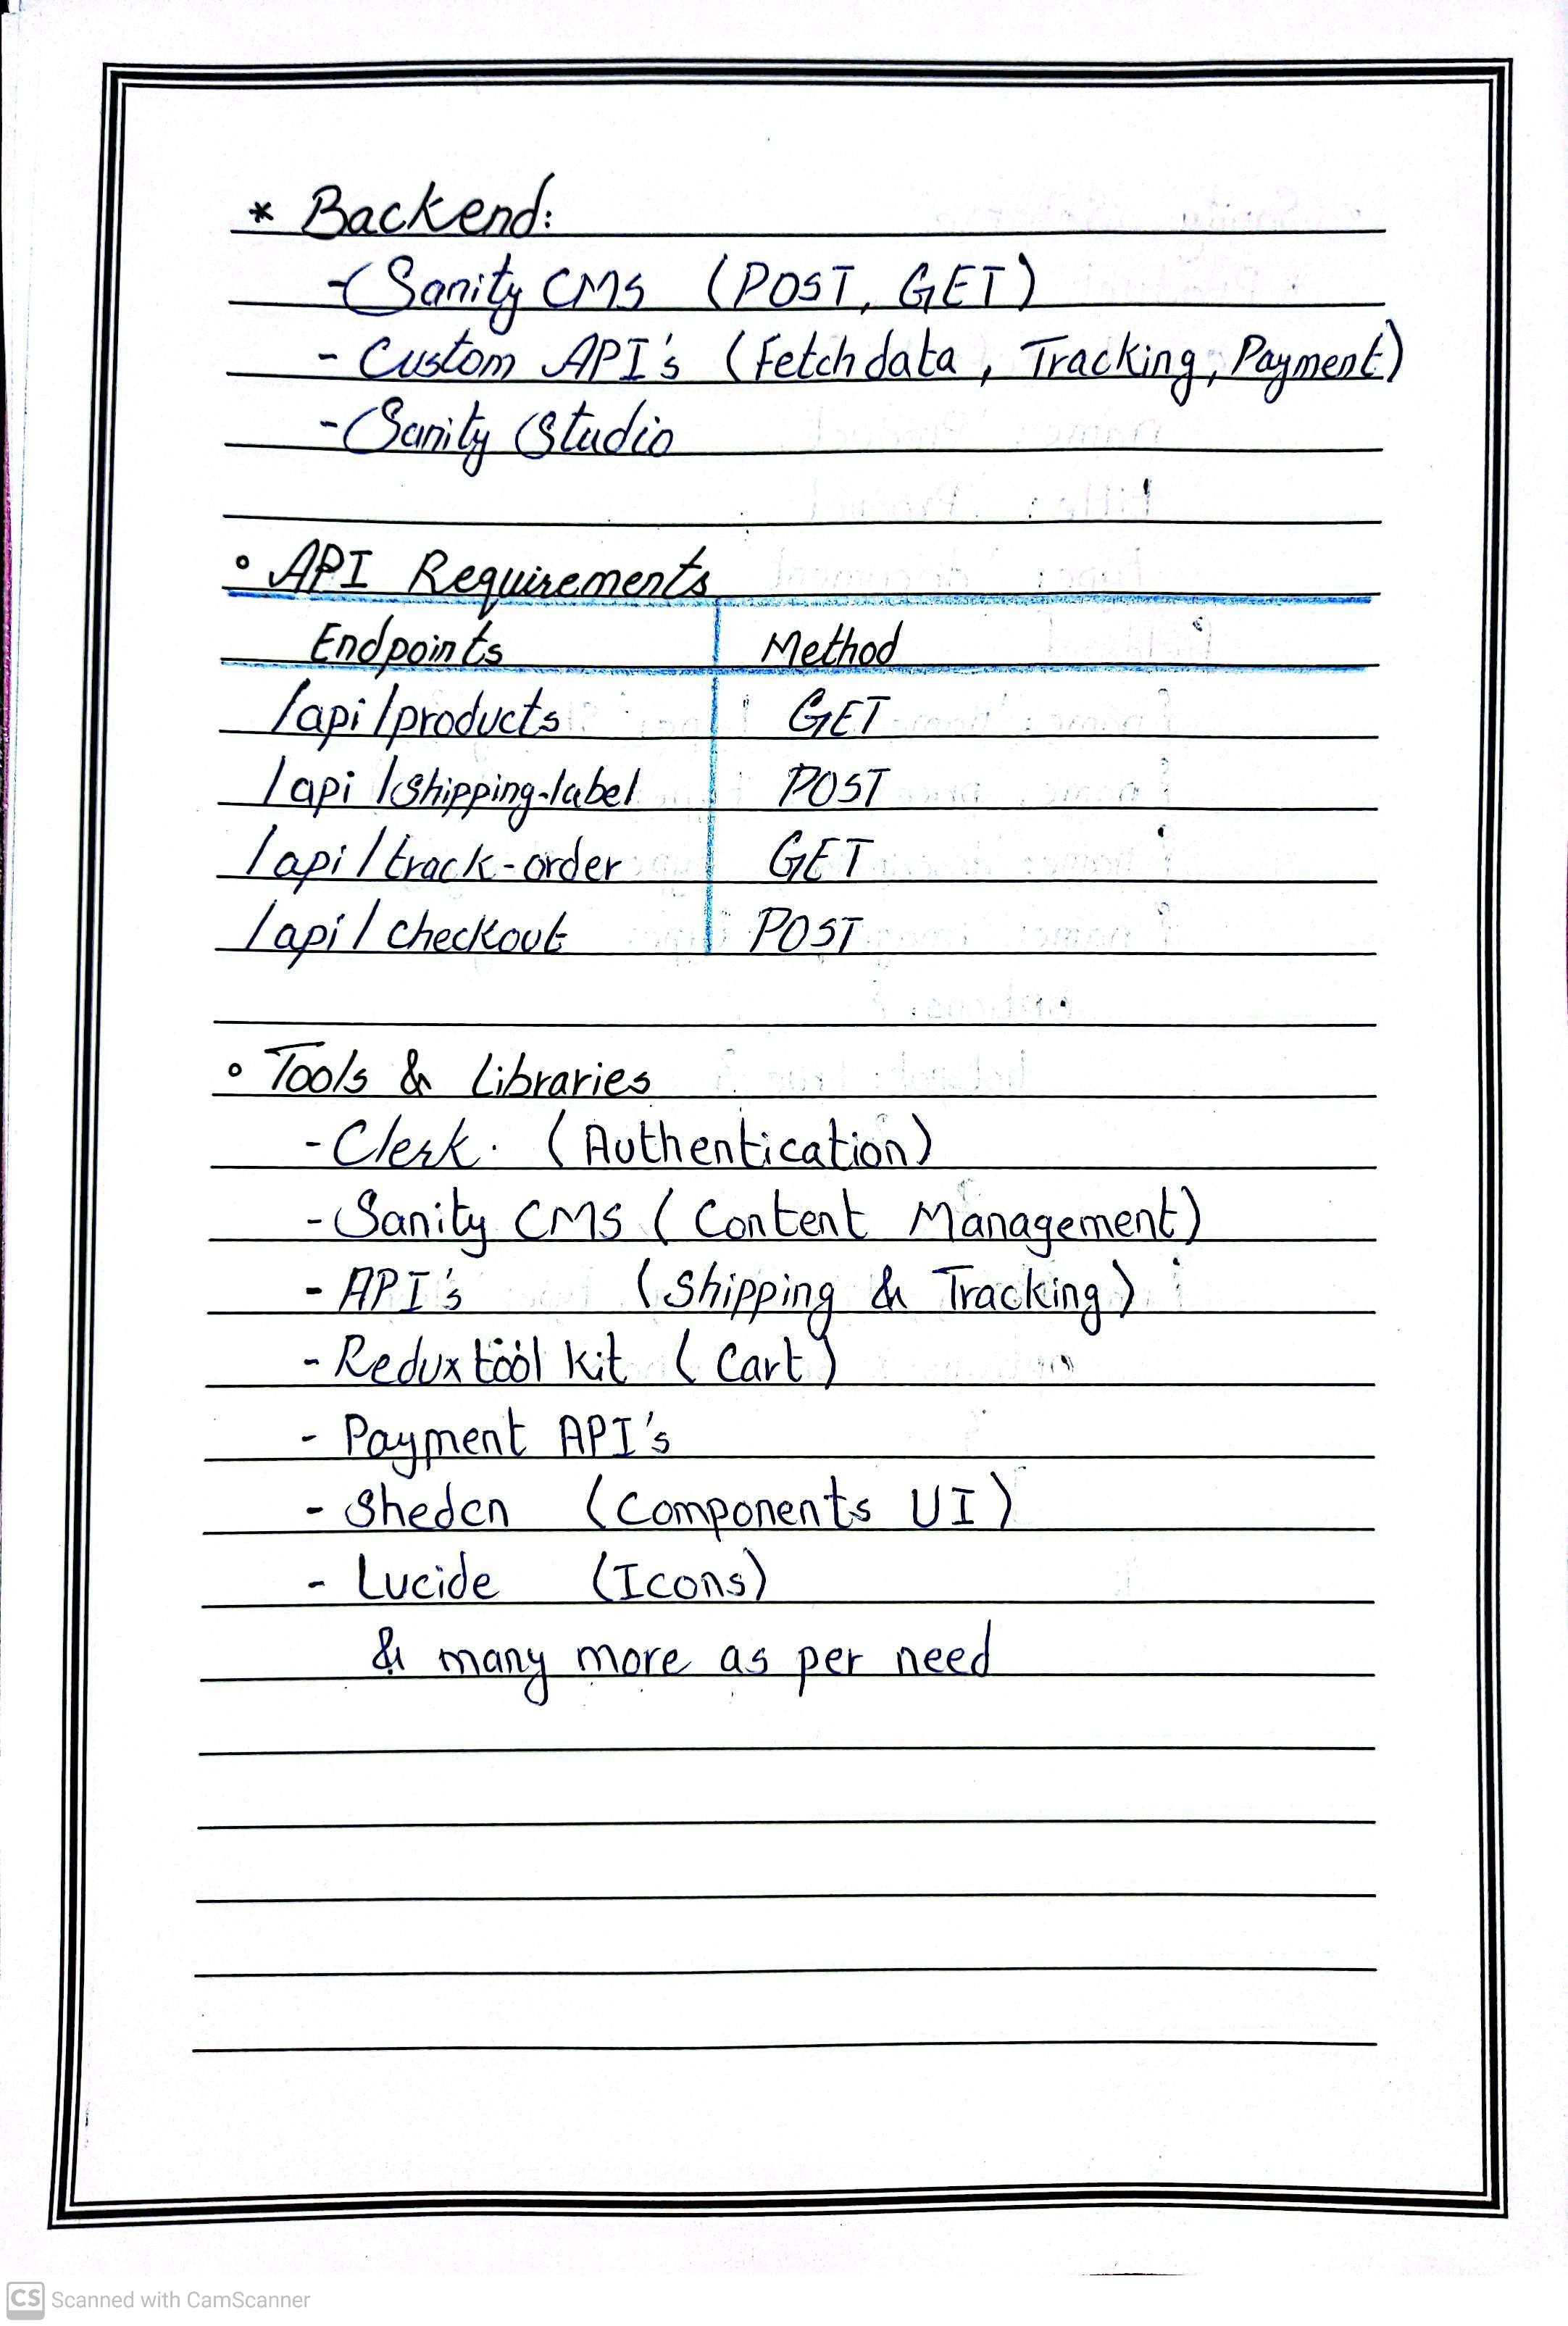 * Backend:
- Sanity CMS (POST, GET)
- Custom API's (Fetch data, Tracking, Payment)
- Sanity Studio
° API Requirements
Endpoints Method
/api/products GET
/api/shipping-label POST
/api/track-order GET
/api/checkout POST
° Tools & Libraries
- Clerk. (Authentication)
- Sanity CMS (Content Management)
- API's (Shipping & Tracking)
- Redux tool kit (Cart)
- Payment API's
- Shedcn (Components UI)
- Lucide (Icons)
& many more as per need
CS Scanned with CamScanner